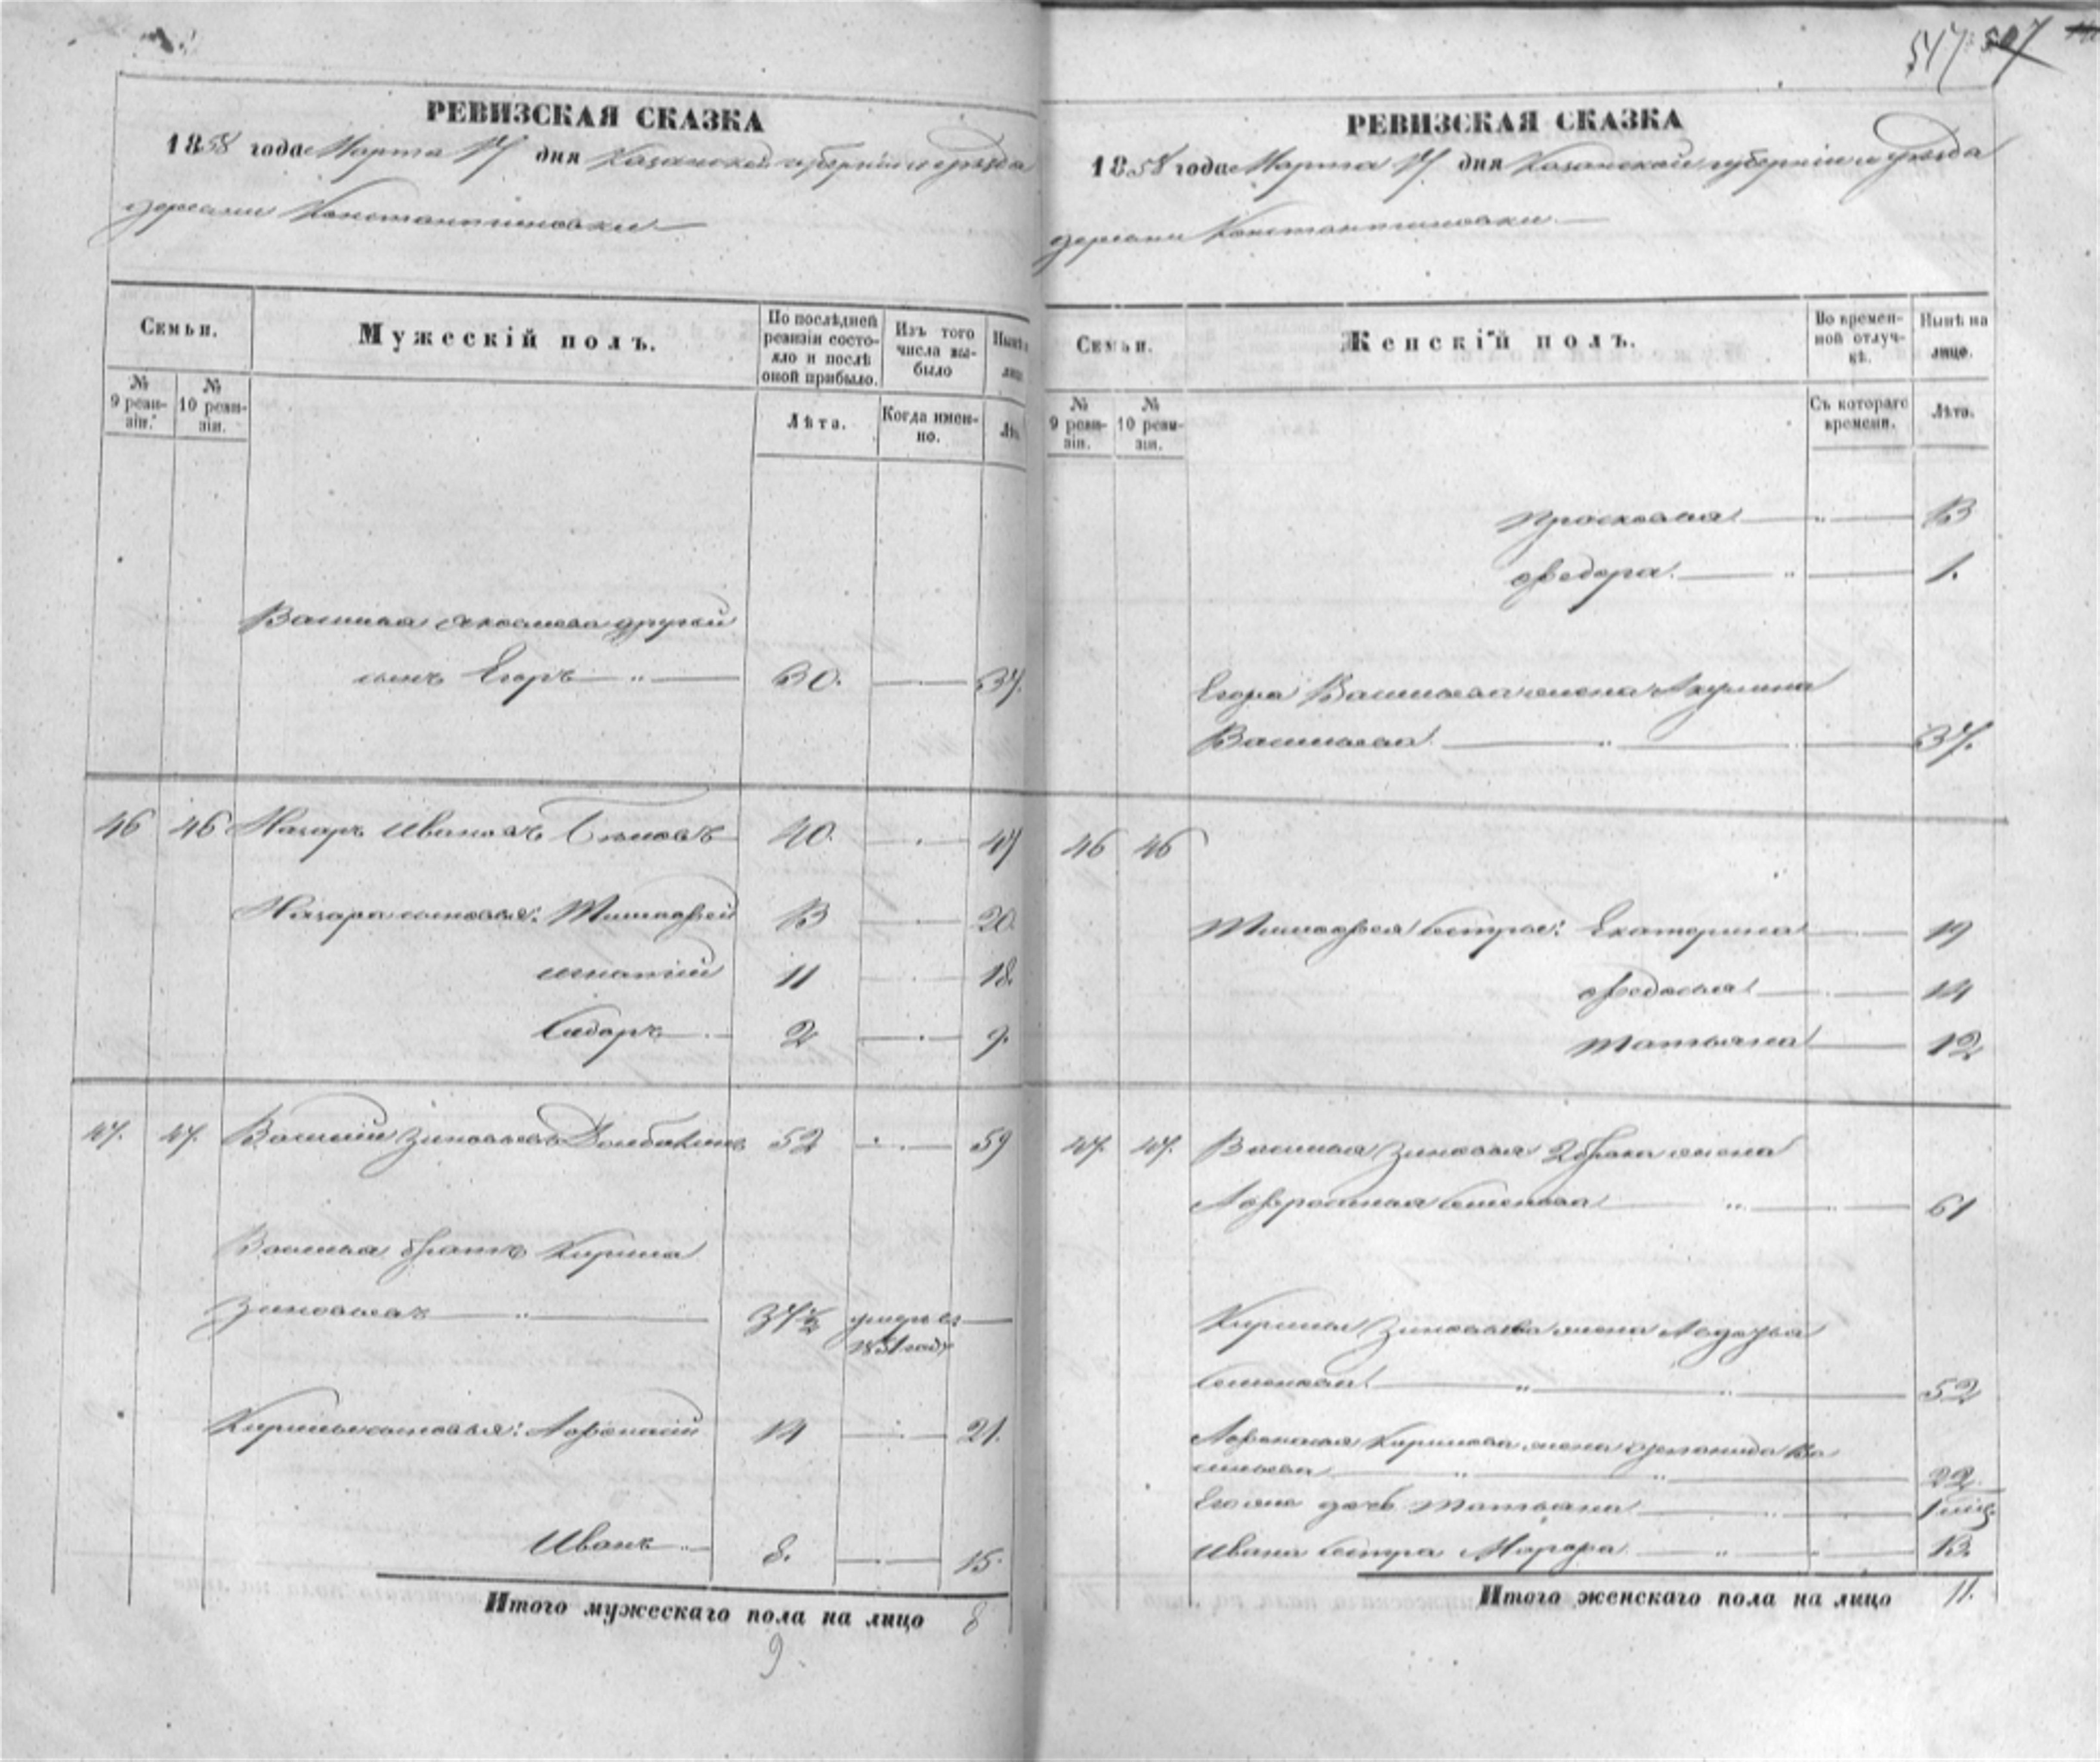 517 507
РЕВИЗСКАЯ СКАЗКА
1858 года Марта 17 дня Казанской губернiи и уѣзда
деревни Константиновки
Семьи.
Мужескiй полъ.
По послѣдней ревизiи состояло и послѣ оной прибыло.
Изъ того числа выбыло
Нынѣ
лицо
№ 9 ревизiи.
№ 10 ревизiи.
Лѣта.
Когда именно.
Лѣ
Василья другой
сынъ Егоръ 30. 37.
46 46 Назаръ Ивановъ Бѣловъ 40. 47
Назара сыновья: Тимофей 13 20.
Игнатiй 11 18.
Сидоръ 2 9.
47. 47. Василiй Зиновьевъ 52 59
Василья братъ Кирила
Зиновьевъ 37½ умеръ въ
1851 году
Кирилы сыновья: Афонасiй 14 21.
Иванъ 8. 15.
Итого мужескаго пола на лицо 8
9
РЕВИЗСКАЯ СКАЗКА
1858 года Марта 17 дня Казанской губернiи и уѣзда
деревни Константиновки
Семьи.
Женскiй полъ.
Во временной отлучкѣ.
Нынѣ на лицо.
№ 9 ревизiи.
№ 10 ревизiи.
Съ котораго времени.
Лѣта.
Прасковья 13
Федора 1.
Егора Васильева жена Акулина
Васильева 37.
46 46
Тимофея сестры: Екатерина 19
Федосья 14
Татьяна 12
47. 47. Василья Зиновьева 2 брака жена
Афросинья Семенова 61
Кирилы Зиновьева жена Авдотья
Семенова 52
Афонасья Кирилова жена Степанида Ва
сильева 22
Его же дочь Татьяна 1 мѣс.
Ивана сестра Марфа 13.
Итого женскаго пола на лицо 11.